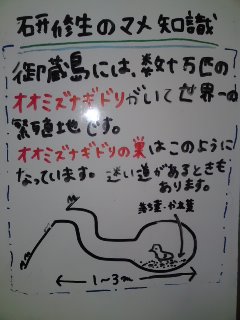 研修生のマメ知識
御蔵島には、数十万匹の
オオミズナギドリがいて世界一の
繁殖地です。
オオミズナギドリの巣はこのように
なっています。迷い道があるときも
あります。
落ち葉・木の葉
1~3m